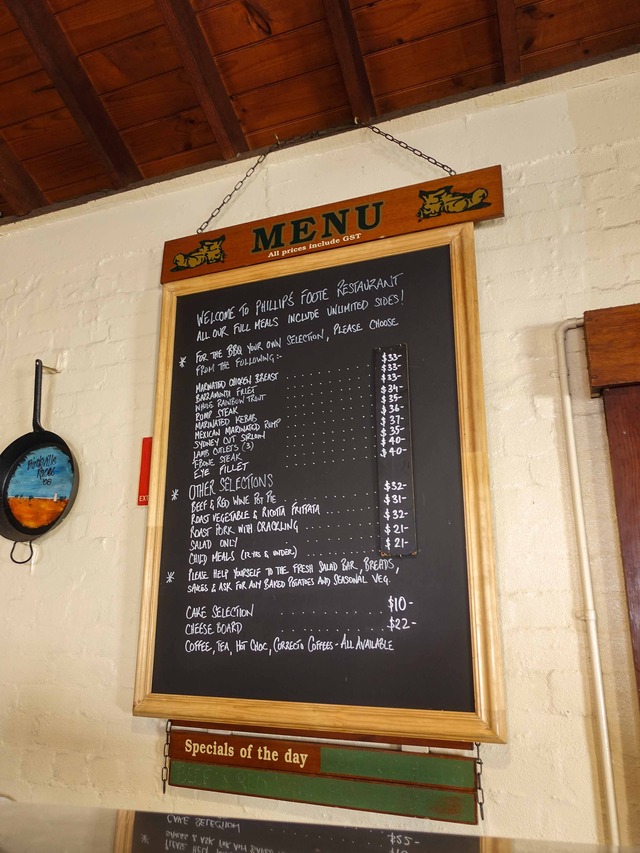 MENU
All prices include GST
WELCOME TO PHILLIP'S FOOTE RESTAURANT
ALL OUR FULL MEALS INCLUDE UNLIMITED SIDES!
* FOR THE BBQ YOUR OWN SELECTION, PLEASE CHOOSE
FROM THE FOLLOWING:-
MARINATED CHICKEN BREAST $33-
BARRAMUNDI FILLET $33-
WHOLE RAINBOW TROUT $33-
RUMP STEAK $34-
MARINATED KEBAB $35-
MEXICAN MARINATED RUMP $36-
SYDNEY CUT SIRLOIN $37-
LAMB CUTLETS (3) $35-
TBONE STEAK $40-
EYE FILLET $40-
* OTHER SELECTIONS
BEEF & RED WINE POT PIE $32-
ROAST VEGETABLE & RICOTTA FRITTATA $31-
ROAST PORK WITH CRACKLING $32-
SALAD ONLY $21-
CHILD MEALS (12 YRS & UNDER) $21-
* PLEASE HELP YOURSELF TO THE FRESH SALAD BAR, BREADS,
SAUCES & ASK FOR ANY BAKED POTATOES AND SEASONAL VEG.
CAKE SELECTION $10-
CHEESE BOARD $22-
COFFEE, TEA, HOT CHOC, CORRECTO COFFEES - ALL AVAILABLE
Specials of the day
Races
'08
EX